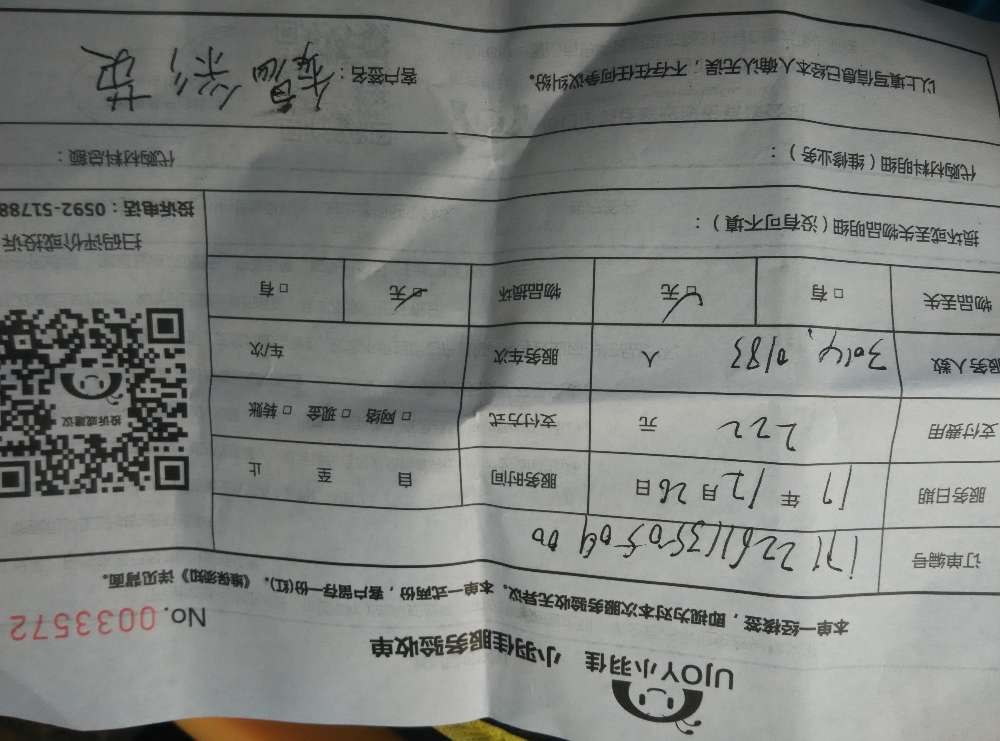 UJOY小羽佳 小羽佳服务验收单
No. 0033572
本单一经接签，即视为对本次服务验收无异议。本单一式两份，客户留存一份(红)。《维保须知》详见背面。
订单编号
服务日期 17 年 12 月 26 日 服务时间 自 至 止
支付费用 222 元 支付方式 □ 网络 □ 现金 □ 转账
服务人数 3014, 0183 人 服务车次 车/次
物品丢失 □ 有 □ 无 物品损坏 □ 无 □ 有
投诉或建议
扫码评价或投诉
投诉电话：0592-51788
损坏或丢失物品明细（没有可不填）：
代购材料明细（维修业务）： 代购材料总额：
以上填写信息已经本人确认无误；不存在任何争议纠纷。 客户签名：